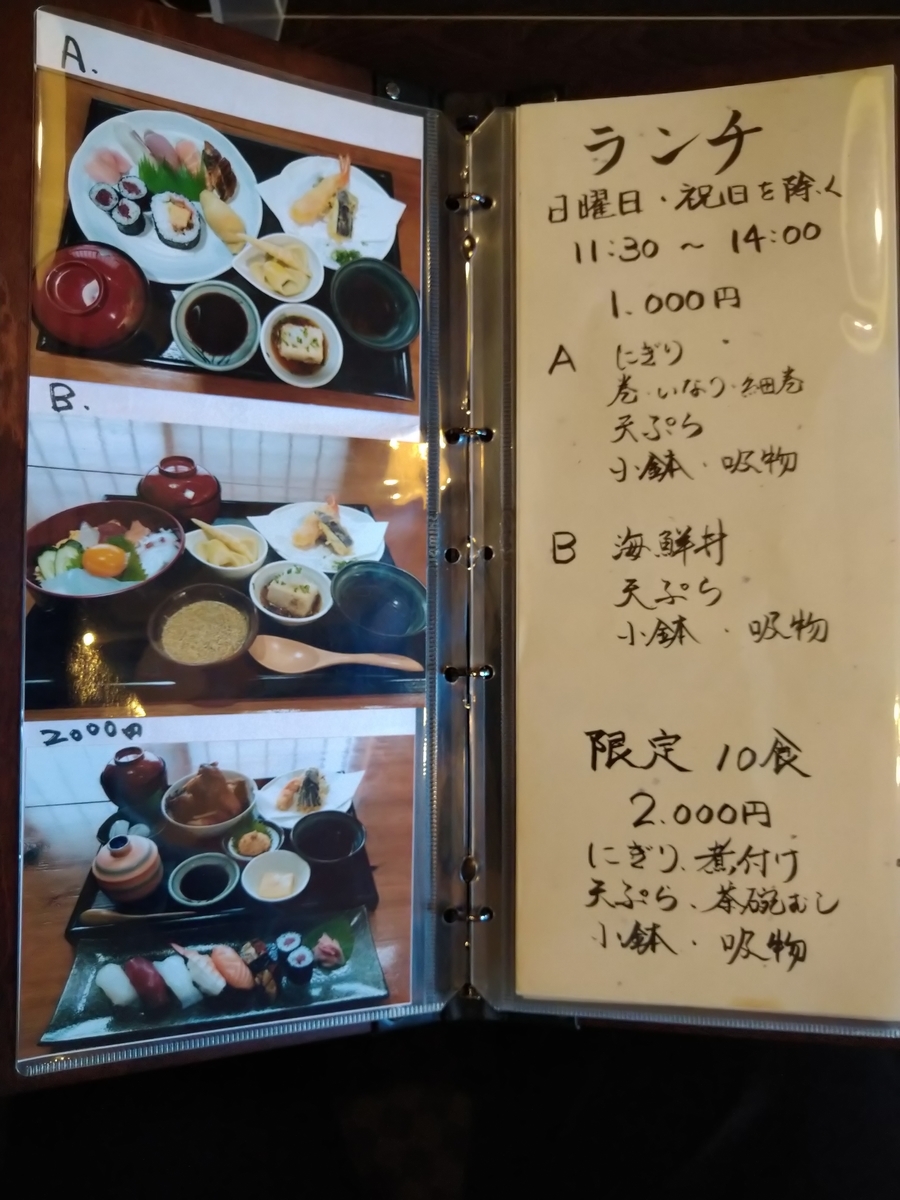 A.
B.
2000円
ランチ
日曜日・祝日を除く
11:30 ~ 14:00
1.000円
A にぎり
巻・いなり・細巻
天ぷら
小鉢・吸物
B 海鮮丼
天ぷら
小鉢・吸物
限定 10食
2.000円
にぎり、煮付け
天ぷら、茶碗むし
小鉢・吸物